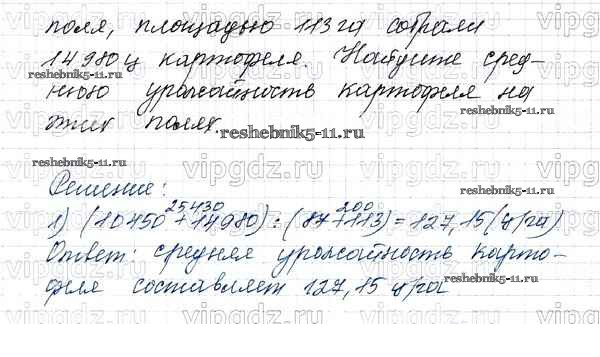 поля, площадью 113 га собрали
14 980 ц картофеля. Найдите сред-
нюю урожайность картофеля на
этих полях.
Решение:
25 430 200
1) (10 450 + 14 980) : (87 + 113) = 127,15 (ц/га)
Ответ: средняя урожайность карто-
феля составляет 127,15 ц/га
reshebnik5-11.ru
reshebnik5-11.ru
reshebnik5-11.ru
reshebnik5-11.ru
reshebnik5-11.ru
reshebnik5-11.ru
vipgdz.ru